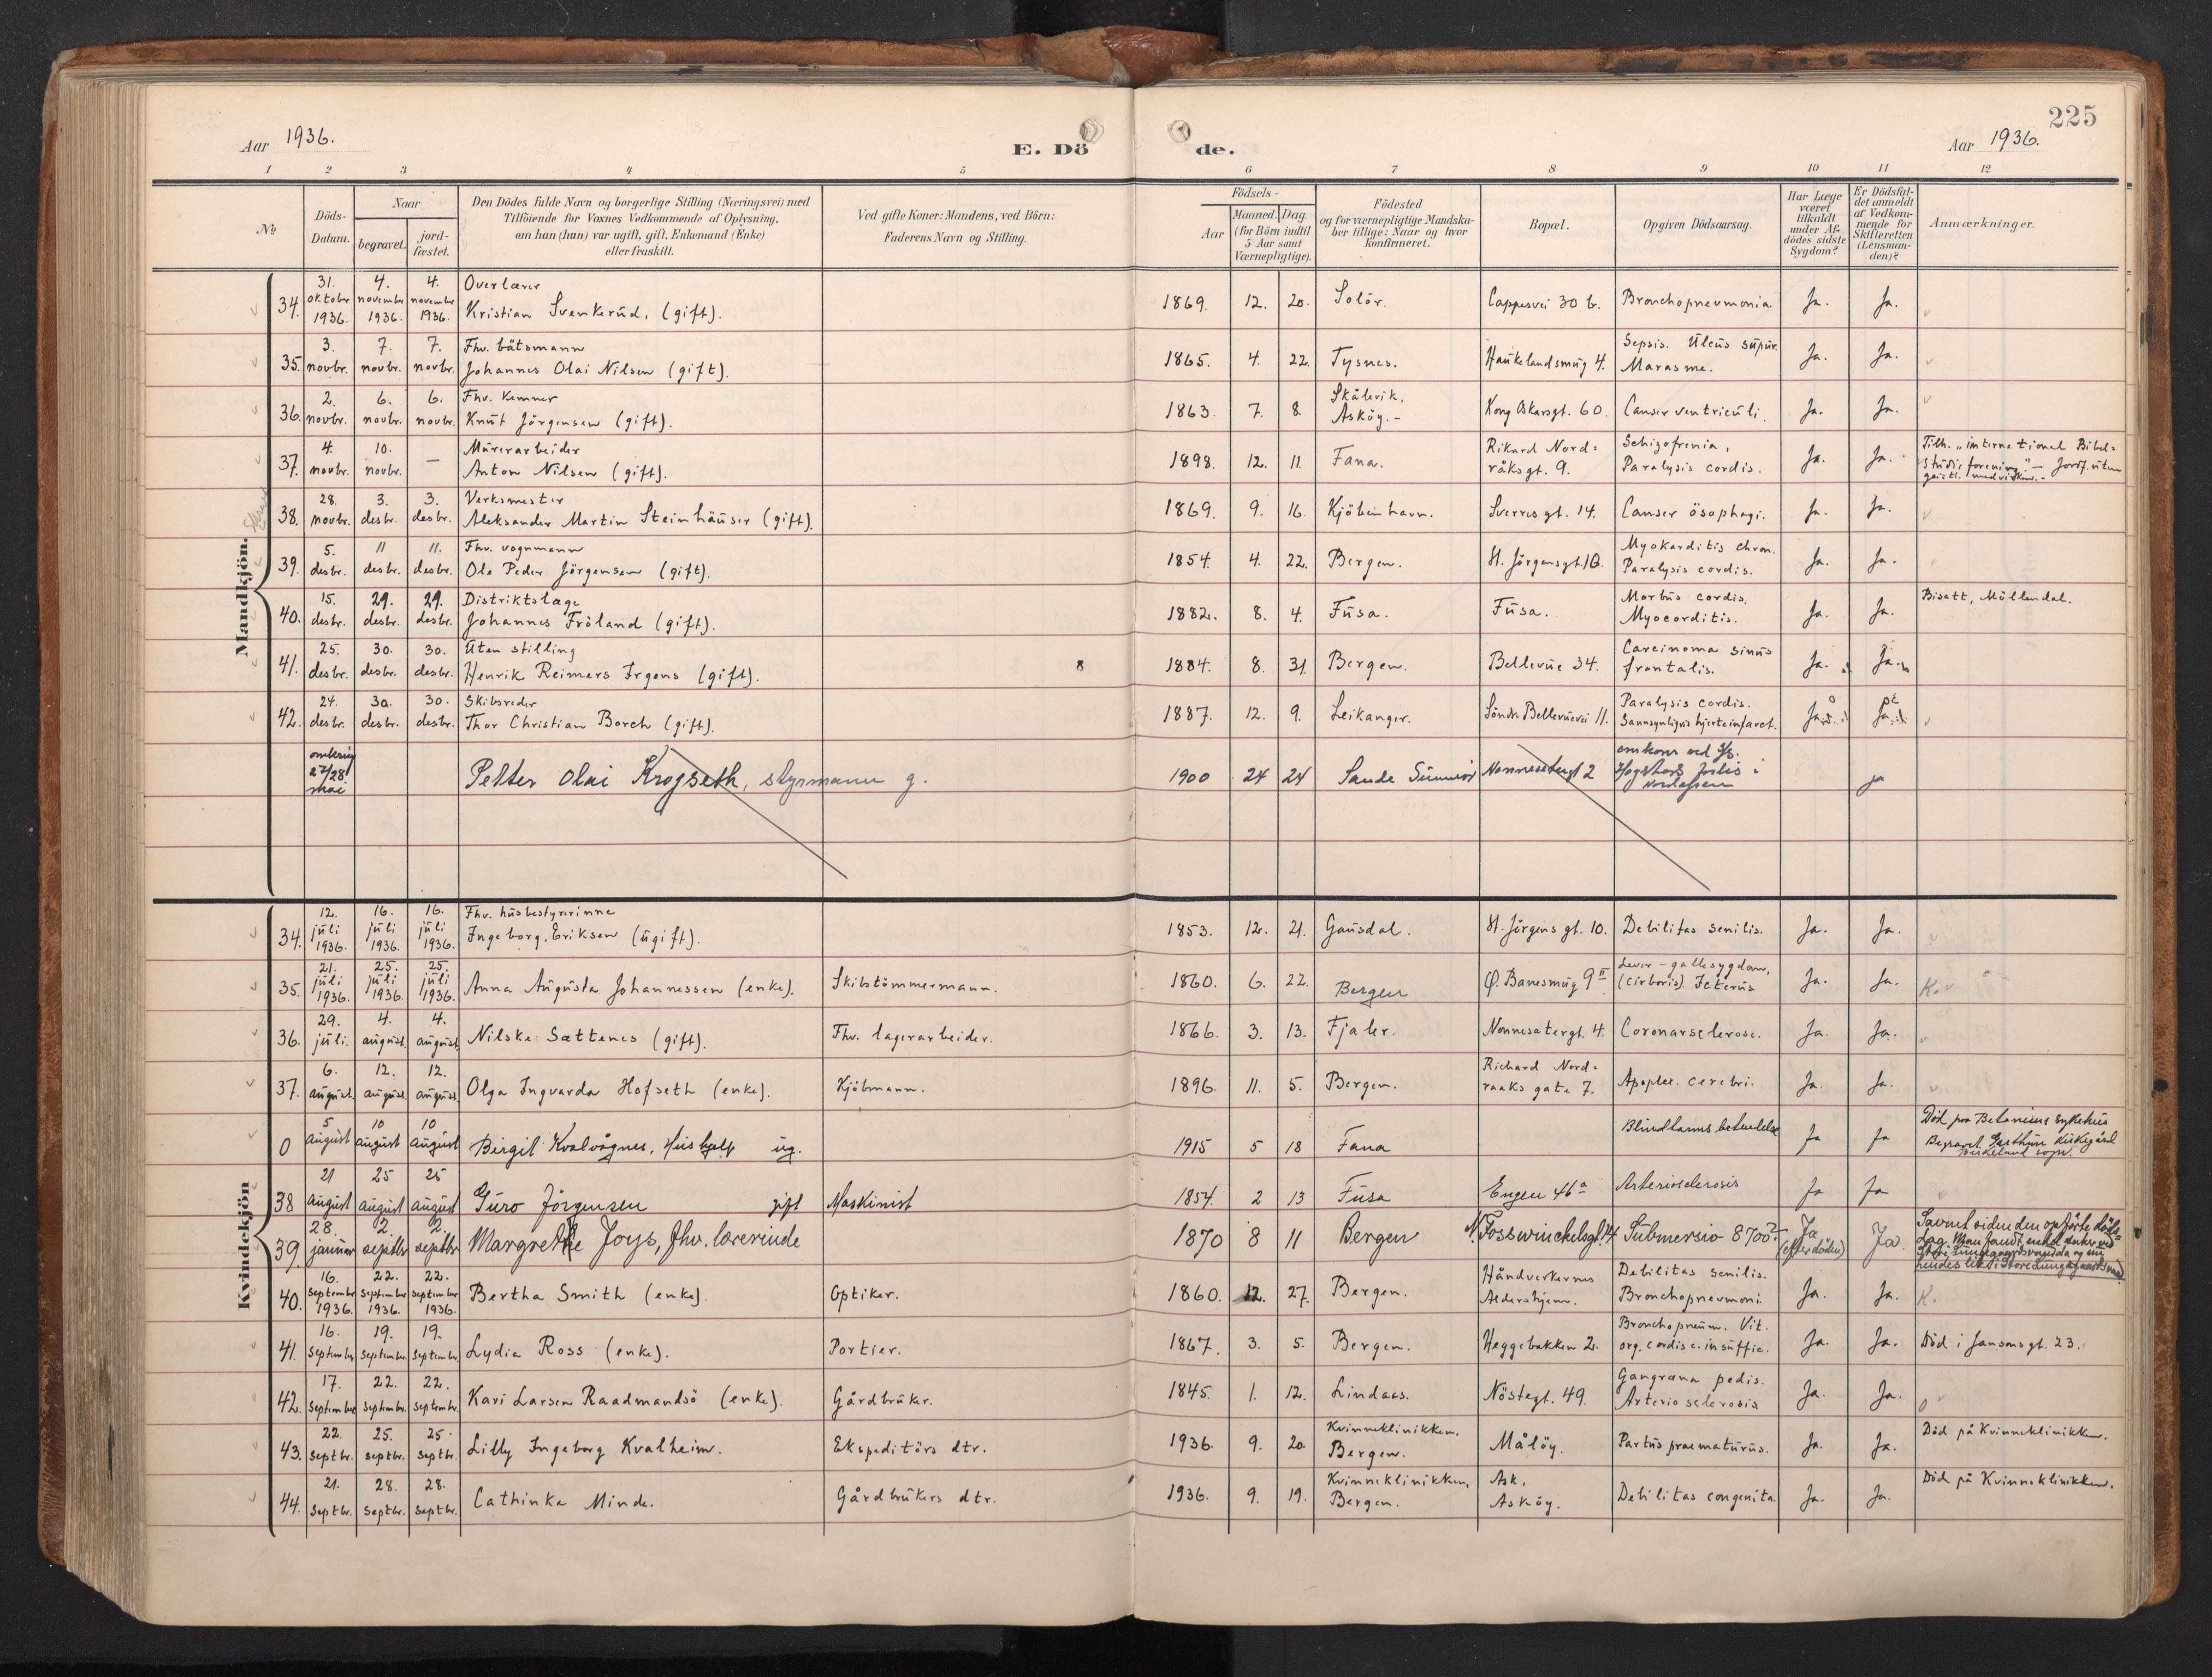 225
Aar 1936. E. Dö de. Aar 1936.
1 2 3 4 5 6 7 8 9 10 11 12
№ Döds-Datum. Naar begravet. jord-fæstet. Den Dödes fulde Navn og borgerlige Stilling (Næringsvei) med Tilföiende for Voxnes Vedkommende af Oplysning, om han (hun) var ugift, gift, Enkemand (Enke) eller fraskilt. Ved gifte Koner: Mandens, ved Börn: Faderens Navn og Stilling. Födsels- Aar Maaned. Dag. (for Börn indtil 5 Aar samt Værnepligtige). Födested og for værnepligtige Mandskaber tillige: Naar og hvor Konfirmeret. Bopæl. Opgiven Dödsaarsag. Har Læge været tilkaldt under Afdödes sidste Sygdom? Er Dödsfaldet anmeldt af Vedkommende for Skifteretten (Lensmanden)? Anmærkninger.
Mandkjön.
34. 31. oktober 1936. 4. november 1936. 4. november 1936. Overlærer Kristian Svenkerud, (gift). 1869. 12. 20. Solör. Cappesvei 30 b. Bronchopneumonia. Ja. Ja.
35. 3. novbr. 7. novbr. 7. novbr. Fhv. båtsmann Johannes Olai Nilsen (gift). 1865. 4. 22. Tysnes. Haukelandsmug 4. Sepsis. Ulcus supur. Marasme. Ja. Ja.
36. 2. novbr. 6. novbr. 6. novbr. Fhv. kemner Knut Jörgensen (gift). 1863. 7. 8. Skålevik, Asköy.- Kong Oskarsgt. 60. Canser ventriculi. Ja. Ja.
37. 4. novbr. 10. novbr. — Murerarbeider Anton Nilsen (gift). 1898. 12. 11. Fana. Rikard Nord=råksgt. 9. Schizofrenia, Paralysis cordis. Ja. Ja. Tilh. "internationel Bibel=studieforening".— Jordf. uten geistl. medvirkn.-
38. 28. novbr. 3. desbr. 3. desbr. Verksmester Aleksander Martin Steinhäuser (gift). 1869. 9. 16. Kjöbenhavn. Sverresgt. 14. Canser ösophagi. Ja. Ja.
39. 5. desbr. 11 desbr. 11. desbr. Fhv. vognmann Ole Peder Jörgensen (gift). 1854. 4. 22. Bergen. St. Jörgensgt. 10. Myokarditis chron. Paralysis cordis. Ja. Ja.
40. 15. desbr. 29. desbr. 29. desbr. Distriktslæge Johannes Fröland (gift). 1882. 8. 4. Fusa. Fusa. Morbus cordis. Myocorditis. Ja. Ja. Bisatt, Möllendal.
41. 25. desbr. 30. desbr. 30. desbr. Uten stilling Henrik Reimers Irgens (gift). 1884. 8. 31. Bergen. Bellevue 34. Carcinoma sinus frontalis. Ja. Ja.
42. 24. desbr. 30. desbr. 30. desbr. Skibsreder Thor Christian Borch (gift). 1887. 12. 9. Leikanger. Söndr. Bellevuevei 11. Paralysis cordis. Sannsynligvis hjerteinfarct. Ja. Ja.
omkring 27/28. mai Petter Olai Krogseth, styrmann g. 1900 24 24 Sande Sunnmör Nonnesetergt 2 omkom ved S/s. forlis i Nordafjorden ja
Kvindekjön
34. 12. juli 1936. 16. juli 1936. 16. juli 1936. Fhv. husbestyrerinne Ingeborg Eriksen (ugift). 1853. 12. 21. Gausdal. St. Jörgens gt. 10. Debilitas senilis. Ja. Ja.
35. 21. juli 1936. 25. juli 1936. 25. juli 1936. Anna Augusta Johannessen (enke). Skibstömmermann. 1860. 6. 22. Bergen Ø. Banesmug 9 II Lever-gallesygdom, (cirhoris). Icterus Ja. Ja. K.
36. 29. juli. 4. august. 4. august. Nilske Sættenes (gift). Fhv. lagerarbeider. 1866. 3. 13. Fjaler. Nonnesetergt. 4. Coronarsclerose. Ja. Ja.
37. 6. august. 12. august. 12. august. Olga Ingvarda Hofseth (enke). Kjöbmann. 1896. 11. 5. Bergen. Richard Nord=raaks gate 7. Apoplex. cerebri. Ja. Ja.
0 5 august 10 august 10 august Birgit Kvalvågnes, Hushjelp ug. 1915 5 18 Fana Blindtarmsbetendelse Ja Ja Död paa Betaniens sykehus Begravet Kirkegård Birkeland sogn.
38 21 august 25 august 25 august Guro Jörgensen gift Maskinist 1854. 2 13 Fusa Engen 46a Arteriosclerosis Ja Ja
39. 28. januar 2. septbr 2. septbr Margrethe Joys, fhv. lærerinde 1870 8 11 Bergen N. Fosswinckelsgt. 14 Submersio 8700? Ja (efter döden) Ja. Savnet siden den opförte döds=dag. Man fandt Store Lungegaardsvand da og nu hendes lik i Store Lungegaardsvand
40. 16. september 1936. 22. september 1936. 22. september 1936. Bertha Smith (enke). Optiker. 1860. 12. 27. Bergen. Håndverkernes Aldershjem. Debilitas senilis. Bronchopneumoni. Ja. Ja. K.
41. 16. september 19. september. 19. september. Lydia Ross (enke). Portier. 1867. 3. 5. Bergen. Heggebakken 2. Bronchopneum. Vit. org. cordis c. insuffic. Ja. Ja. Död i Jansonsgt. 23.
42. 17. september 22. septembr. 22. september. Kari Larsen Raadmandsö (enke). Gårdbruker. 1845. 1. 12. Lindaas. Nöstegt. 49. Gangræna pedis. Arteriosclerosis Ja. Ja.
43. 22. septbr. 25. septbr. 25. septbr Lilly Ingeborg Kvalheim. Ekspeditörs dtr. 1936. 9. 20. Kvinneklinikken, Bergen. Målöy. Partus praematurus. Ja. Ja. Död på Kvinneklinikken.
44. 21. septbr. 28. septbr. 28. septbr. Cathinka Minde. Gårdbrukers dtr. 1936. 9. 19. Kvinneklinikken, Bergen. Ask, Asköy. Debilitas congenita. Ja. Ja. Död på Kvinneklinikken.